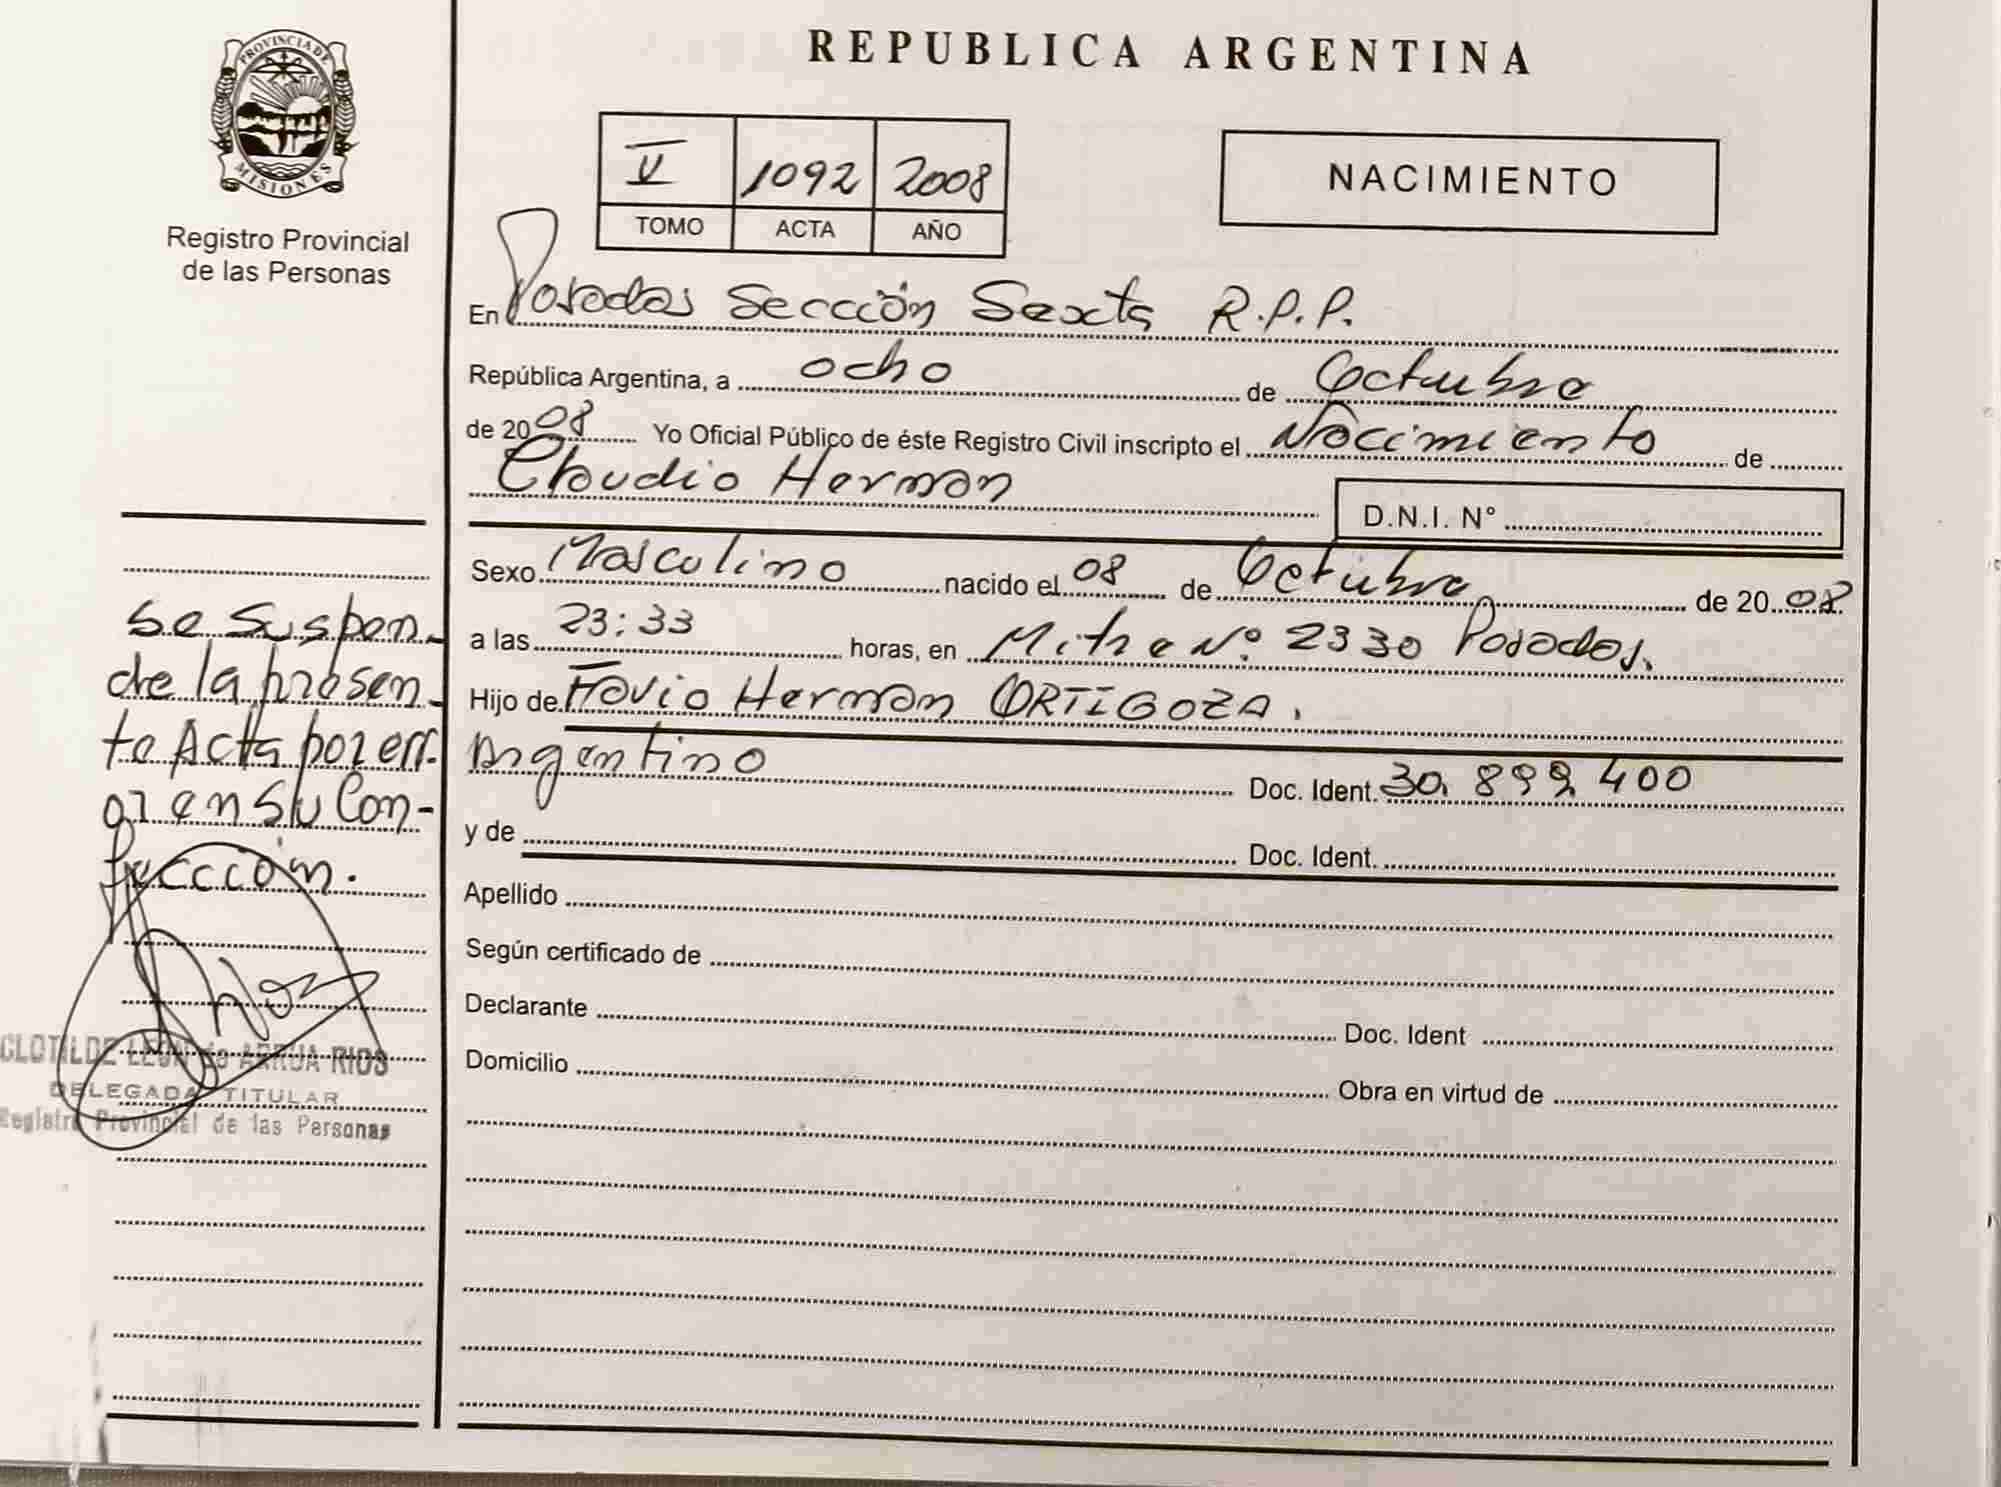 PROVINCIA DE
MISIONES
Registro Provincial
de las Personas
REPUBLICA ARGENTINA
V 1092 2008
TOMO ACTA AÑO
NACIMIENTO
En Posadas Sección Sexta R.P.P.
República Argentina, a ocho de Octubre
de 2008 Yo Oficial Público de éste Registro Civil inscripto el Nacimiento de
Claudio Hernan
D.N.I. N°
Sexo Masculino nacido el 08 de Octubre de 2008
a las 23:33 horas, en Mitre Nº 2330 Posadas.
Hijo de Flavio Hernan ORTIGOZA.
Argentino Doc. Ident. 30.899.400
y de Doc. Ident.
Apellido
Según certificado de
Declarante Doc. Ident
Domicilio Obra en virtud de
Se Suspen-
de la presen-
te Acta por err-
or en su Con-
fección.
CLOTILDE LEON de ARRUA RIOS
DELEGADA TITULAR
Registro Provincial de las Personas